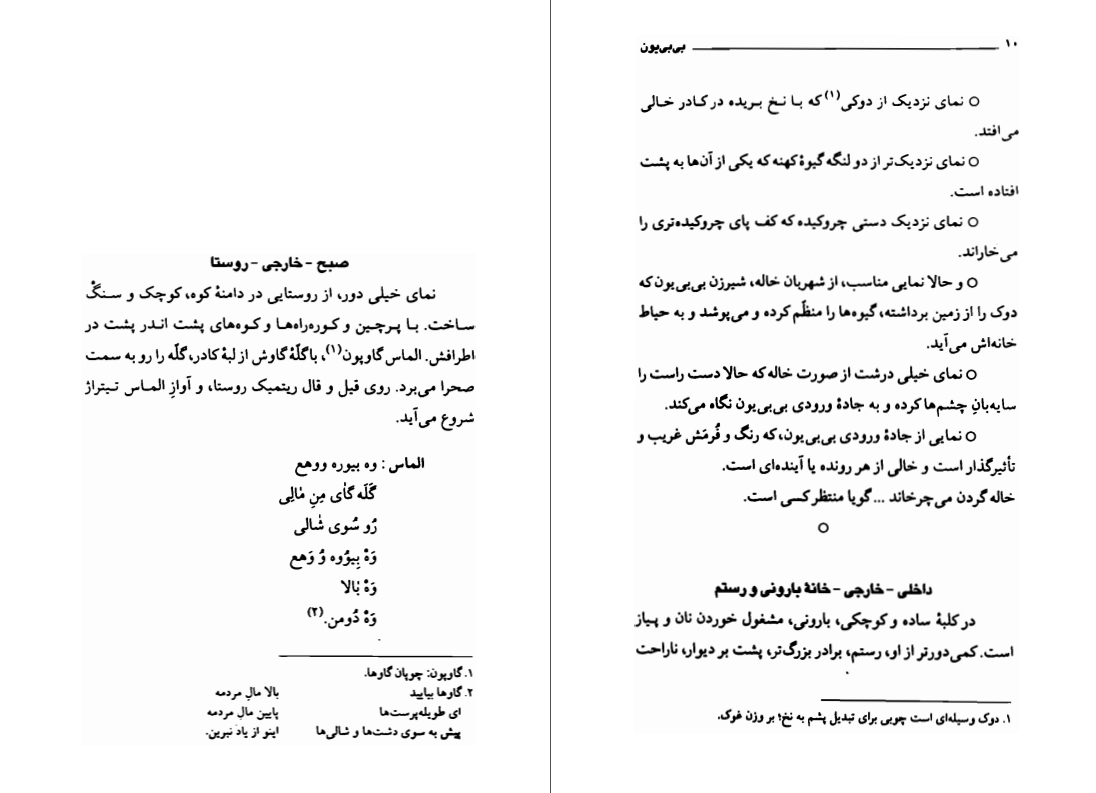 ۱۰ بی‌بی‌یون
○ نمای نزدیک از دوکی(۱) که با نخ بریده در کادر خالی
می‌افتد.
○ نمای نزدیک‌تر از دو لنگه گیوهٔ کهنه که یکی از آن‌ها به پشت
افتاده است.
○ نمای نزدیک دستی چروکیده که کف پای چروکیده‌تری را
می‌خاراند.
○ و حالا نمایی مناسب، از شهربان خاله، شیرزن بی‌بی‌یون که
دوک را از زمین برداشته، گیوه‌ها را منظّم کرده و می‌پوشد و به حیاط
خانه‌اش می‌آید.
○ نمای خیلی درشت از صورت خاله که حالا دست راست را
سایه‌بانِ چشم‌ها کرده و به جادهٔ ورودی بی‌بی‌یون نگاه می‌کند.
○ نمایی از جادهٔ ورودی بی‌بی‌یون، که رنگ و فُرمَش غریب و
تأثیرگذار است و خالی از هر رونده یا آینده‌ای است.
خاله گردن می‌چرخاند ... گویا منتظر کسی است.
○
داخلی - خارجی - خانهٔ بارونی و رستم
در کلبهٔ ساده و کوچکی، بارونی، مشغول خوردن نان و پیاز
است. کمی‌دورتر از او، رستم، برادر بزرگ‌تر، پشت بر دیوار، ناراحت
۱. دوک وسیله‌ای است چوبی برای تبدیل پشم به نخ؛ بر وزن غوک.
صبح - خارجی - روستا
نمای خیلی دور، از روستایی در دامنهٔ کوه، کوچک و سنگْ
ساخت. با پرچین و کوره‌راه‌ها و کوه‌های پشت اندر پشت در
اطرافش. الماس گاوپون(۱)، با گلّهٔ گاوش از لبهٔ کادر، گلّه را رو به سمت
صحرا می‌برد. روی قیل و قال ریتمیک روستا، و آوازِ الماس تیتراژ
شروع می‌آید.
الماس : وه بیوره ووهع
گَلَه گاٰی مِنِ ماٰلِی
رُو سُوی شاٰلی
وَهْ بِیوُوه وُ وَهع
وَهْ باٰلا
وَهْ دُومن.(۲)
۱. گاوپون: چوپان گاوها.
۲. گاوها بیایید بالا مالِ مردمه
ای طویله‌پرست‌ها پایین مالِ مردمه
پیش به سوی دشت‌ها و شالی‌ها اینو از یاد نبرین.